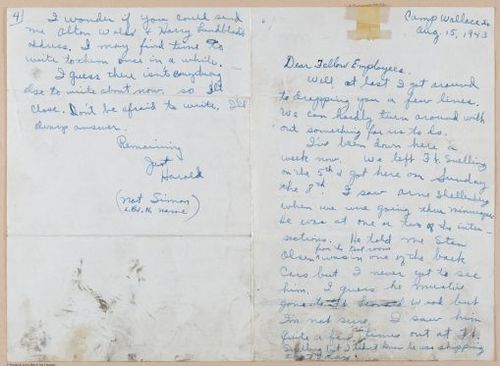 4)
I wonder if you could send
me Alton Wolds & Harry Lindblads
address. I may find time to
write to them once in a while.
I guess there isn't anything
else to write about now. so I'll
close. Don't be afraid to write. I'll
always answer.
Remaining
Just
Harold
(Nat Simon)
Camp Wallace
Aug 15, 1943
Dear Fellow Employees.
Well, at last I got around
to dropping you a few lines.
We can hardly turn around with
out something for us to do.
I've been down here a
week now. We left Ft. Snelling
on the 5th & got here on Sunday
the 8th. I saw Arne
when we were going thru
He was at one or two of the inter-
sections. He told me Stan
Olsen was in one of the back
Cars but I never got to see
him. I guess he
gone to Ft. Wood but
I'm not sure. I saw him
quite a few times out at Ft.
Snelling but I didn't know he was shipping